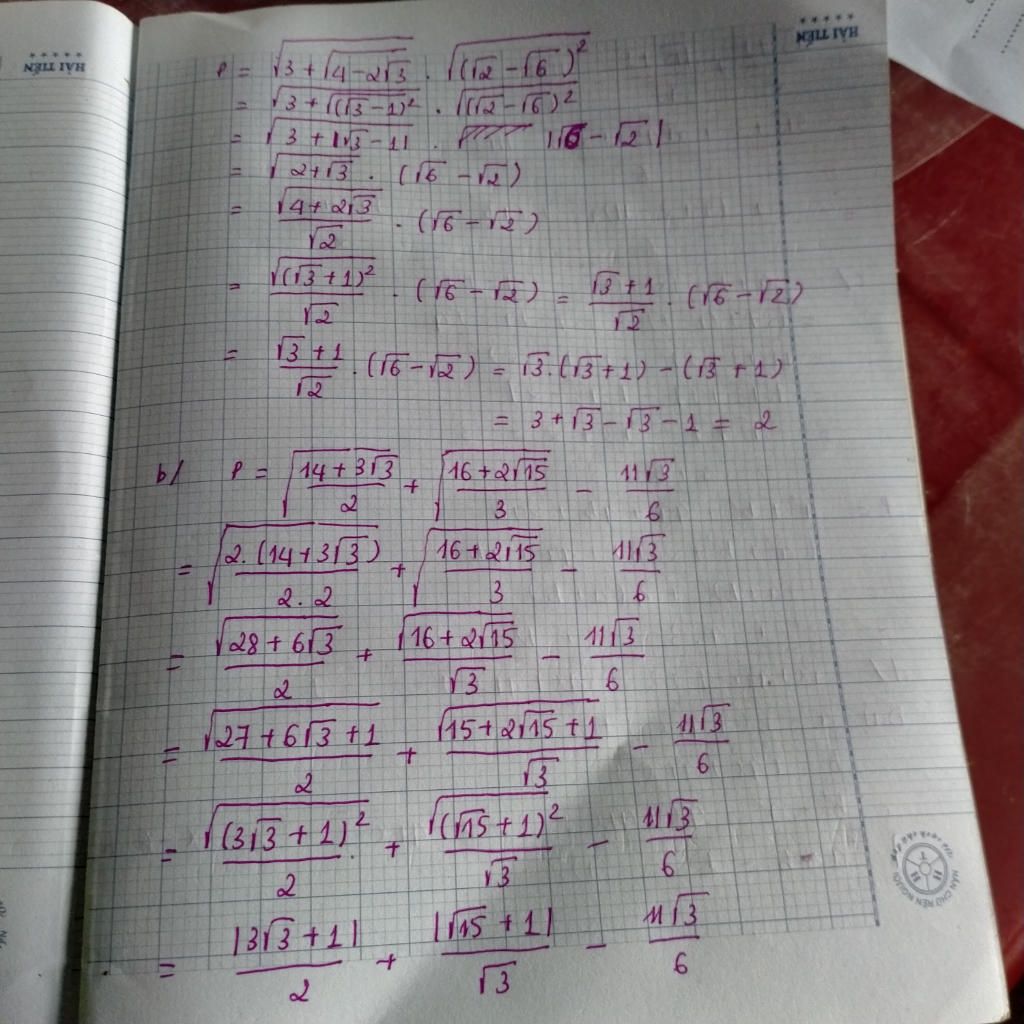 HẢI TIẾN
HẢI TIẾN
P = √(3 + √(4 - 2√3)) . √((√2 - √6)²)
= √(3 + √((√3 - 1)²)) . √((√2 - √6)²)
= √(3 + |√3 - 1|) . |√6 - √2|
= √(2 + √3) . (√6 - √2)
= √(4 + 2√3)/√2 . (√6 - √2)
= √((√3 + 1)²)/√2 . (√6 - √2) = (√3 + 1)/√2 . (√6 - √2)
= (√3 + 1)/√2 . (√6 - √2) = √3.(√3 + 1) - (√3 + 1)
= 3 + √3 - √3 - 1 = 2
b/ P = √((14 + 3√3)/2) + √((16 + 2√15)/3) - 11√3/6
= √(2.(14 + 3√3)/2.2) + √((16 + 2√15)/3) - 11√3/6
= √(28 + 6√3)/2 + √(16 + 2√15)/√3 - 11√3/6
= √(27 + 6√3 + 1)/2 + √(15 + 2√15 + 1)/√3 - 11√3/6
= √((3√3 + 1)²)/2 + √((√15 + 1)²)/√3 - 11√3/6
= |3√3 + 1|/2 + |√15 + 1|/√3 - 11√3/6